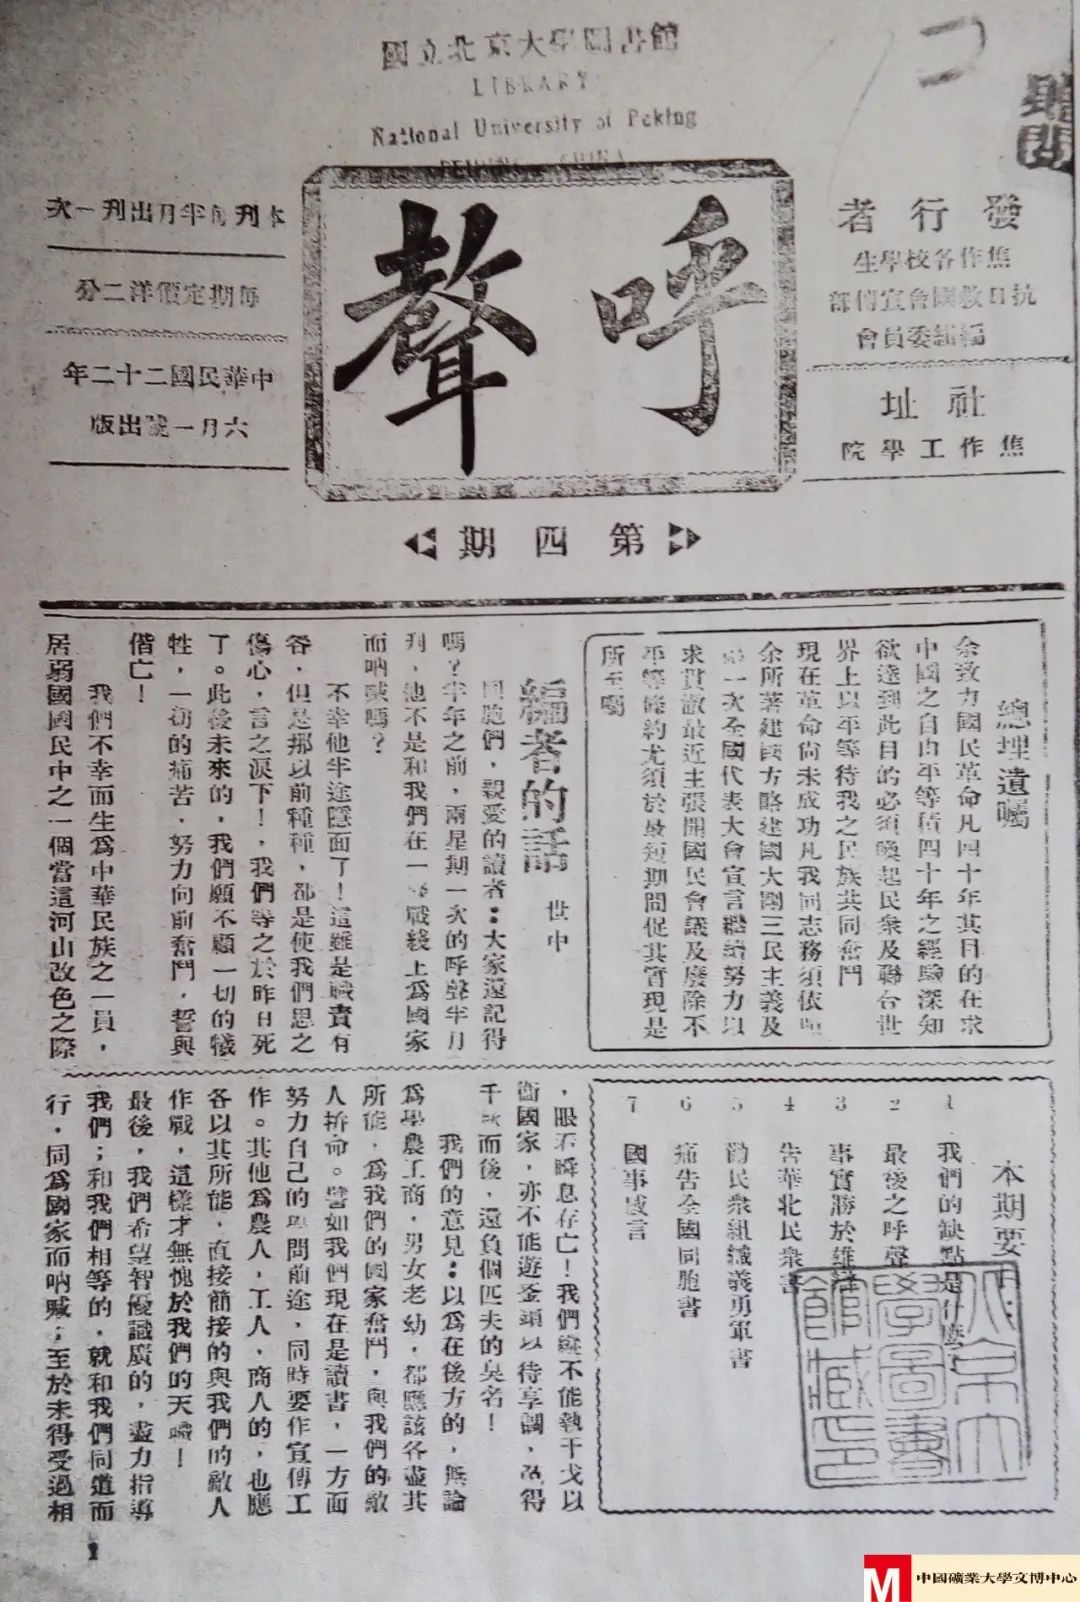 國立北京大學圖書館
LIBRARY
National University of Peking
PEIPING CHINA
呼聲
發行者
焦作各校學生
抗日救國會宣傳部
編輯委員會
社址
焦作工學院
本刊每半月出刊一次
每期定價洋二分
中華民國二十二年
六月一號出版
第四期
總理遺囑
余致力國民革命凡四十年其目的在求
中國之自由平等積四十年之經驗深知
欲達到此目的必須喚起民衆及聯合世
界上以平等待我之民族共同奮鬥
現在革命尚未成功凡我同志務須依照
余所著建國方略建國大綱三民主義及
第一次全國代表大會宣言繼續努力以
求貫澈最近主張開國民會議及廢除不
平等條約尤須於最短期間促其實現是
所至囑
編者的話
世中
同胞們，親愛的讀者：大家還記得
嗎？半年之前，兩星期一次的呼聲半月
刊，他不是和我們在一條戰綫上爲國家
而吶喊嗎？
不幸他半途隱面了！這雖是職責有
咎，但是揶以前種種，都是使我們思之
傷心，言之淚下！，我們等之於昨日死
了。此後未來的，我們願不顧一切的犧
牲，一切的痛苦，努力向前奮鬥，誓與
偕亡！
我們不幸而生爲中華民族之一員，
居弱國國民中之一個當這河山改色之際
，眼看瞬息存亡！我們縱不能執干戈以
衛國家，亦不能遊釜頭以待享調，落得
千秋而後，還負個匹夫的臭名！
我們的意見：以爲在後方的，無論
爲學農工商，男女老幼，都應該各盡其
所能，爲我們的國家奮鬥，與我們的敵
人拚命。譬如我們現在是讀書，一方面
努力自己的學問前途，同時要作宣傳工
作。其他爲農人，工人，商人的，也應
各以其所能，直接簡接的與我們的敵人
作戰，這樣才無愧於我們的天職！
最後，我們希望智優識廣的，盡力指導
我們；和我們相等的，就和我們同道而
行，同爲國家而吶喊；至於未得受過相
本期要目：
1 我們的缺點是什麼
2 最後之呼聲
3 事實勝於雄辯
4 告華北民衆書
5 勸民衆組織義勇軍書
6 痛告全國同胞書
7 國事感言
北京大學圖書館藏印
1
中國礦業大學文博中心